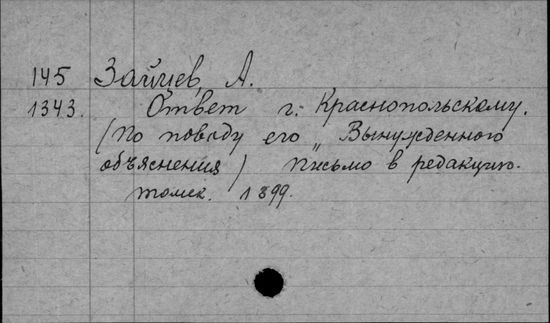 145 Зайцев, А.
1343. Ответ г. Краснопольскому.
(По поводу его „Вынужденного
объяснения) письмо в редакцию.
Томск. 1899.